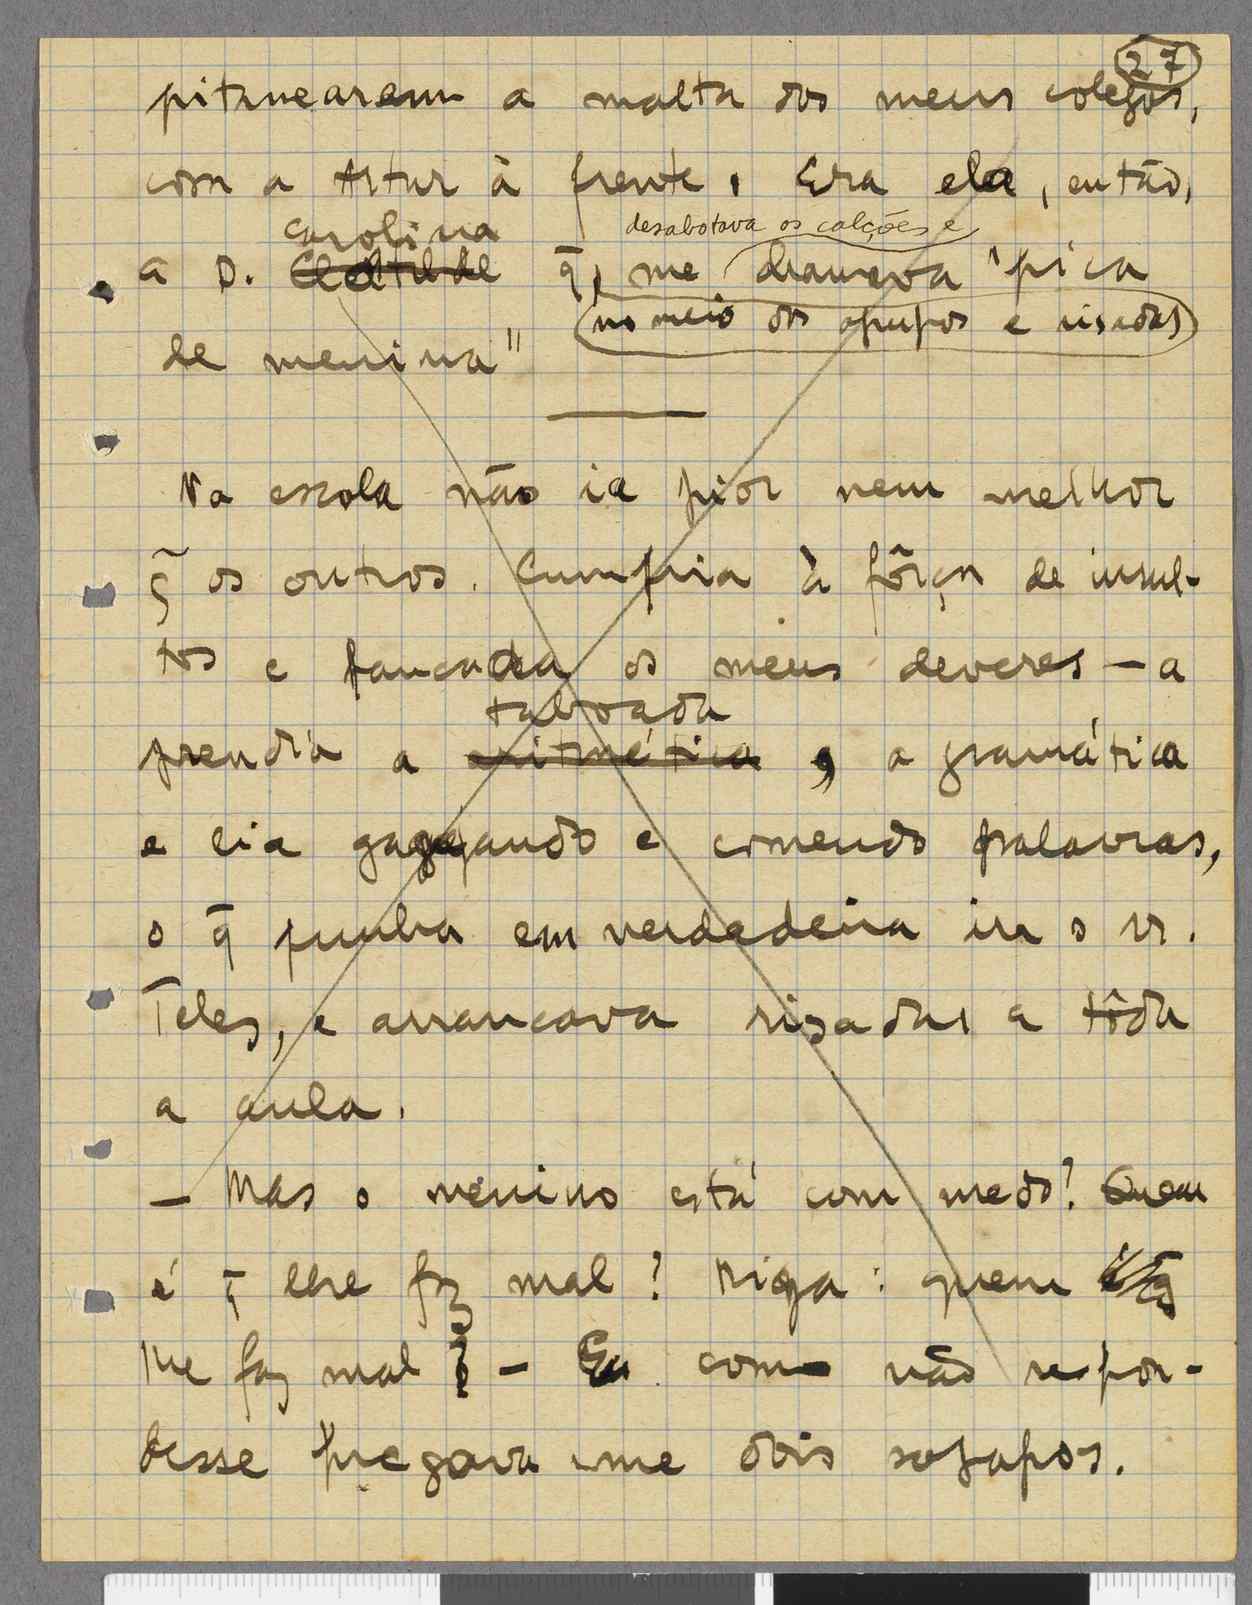 27
a malta dos meus colegas,
com o Artur à frente. Era ela, então,
Carolina desabotoava os calções e
a D. Clotilde q̄, me chamava "pica
no meio dos apupos e risadas
de menina"
Na escola não ia pior nem melhor
q̄ os outros. Cumpria à fôrça de insul-
tos e pancada os meus deveres — a
taboada
prendia a aritmética, a gramática
e lia gaguejando e comendo palavras,
o q̄ punha em verdadeira ira o sr.
Teles, e arrancava risadas a tôda
a aula.
— Mas o menino está com medo? Quem
é q̄ lhe faz mal? Diga: quem é q̄
lhe faz mal? — E como não respon-
desse pregava-me dois sopapos.